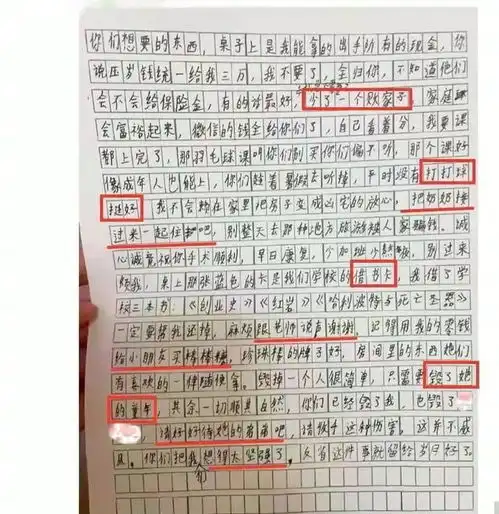 你们想要的东西，桌子上是我能拿的出手所有的现金，你
说压岁钱统一给我三万，我不要了，全归你，不知道他们
会不会给保险金，有的话最好，少了一个败家子，家庭
会富裕起来，微信的钱全给你们了，自己看着分，我要课
都上完了，那羽毛球课叫你们别买你们偏不听，那个课好
像成年人也能上，你们趁着暑假去听掉，平时没有打打球
挺好，我不会躺在家里把房子变成凶宅的放心，把奶奶接
过来一起住吧，别整天去那种地方旅游被人家骗钱，诚
心诚意祝你手术顺利，早日康复，个加址小，别过来
烦我，桌上那张蓝色的卡是我们学校的借书卡，我借了学
校三本书：《创业史》《红岩》《哈利波特与死亡圣器》
一定要帮我还掉，麻烦跟老师说声谢谢，记得用我的零钱
给小朋友买棒棒糖，珍珠棒的牌子好，房间里的东西她们
有喜欢的一律随便拿。毁掉一个人很简单，只需要毁了她
的童年，其余一切顺其自然，你们已经毁了我，也毁了
，请好好待她的弟弟吧，请收手这种伤害，这并不威
风。你们把我们想得太坚强了。反省这件事就留给岁月好了。